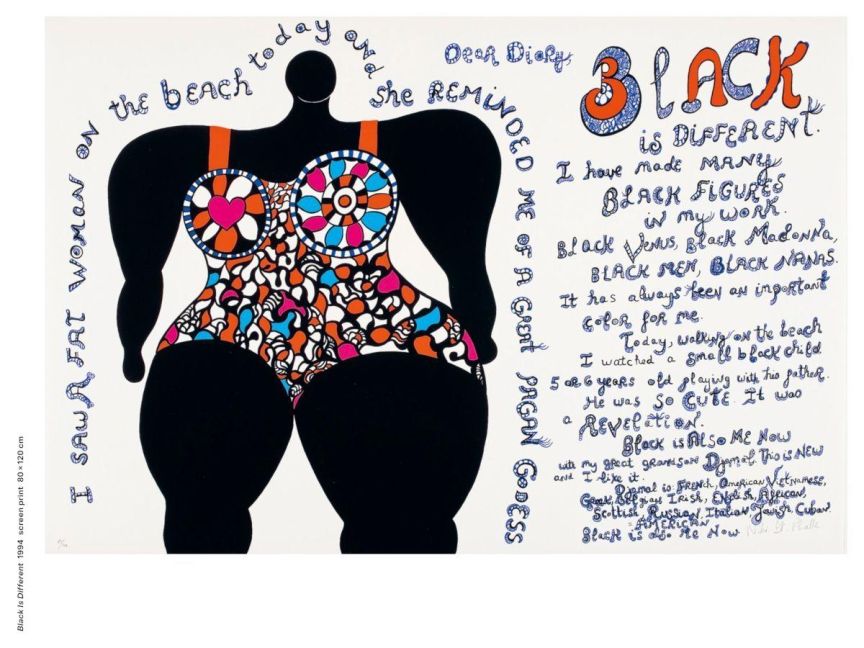 I SAW A FAT WOMAN ON the bEACH today and she REMINDED ME OF A Great PAGAN GODESS
Dear Diary,
BlACK
is DiFFERENT.
I have made MANy
BLACK FiGURES
in my work.
BlACK VENUS, BlACK MADONNA,
BLACK MEN, BLACK NANAS.
It has always been an important
color for me.
Today, walking on the beach
I watched a small black child
5 or 6 years old playing with his father.
He was SO CUTE. It was
a REVElATiON.
Black is Also ME Now
with my great grandson Djamal. This is NEW
and I like it.
Djamal is FRENCH, American, VIETNAMESE,
Greek, Belgians, IRISH, ENGLISH, AFRICAN,
SCOTTISH, RUSSIAN, ITALIAN, Jewish, Cuban
= AMERICAN
Black is also Me Now
Niki St. Phalle
Black Is Different 1994 screen print 80 × 120 cm